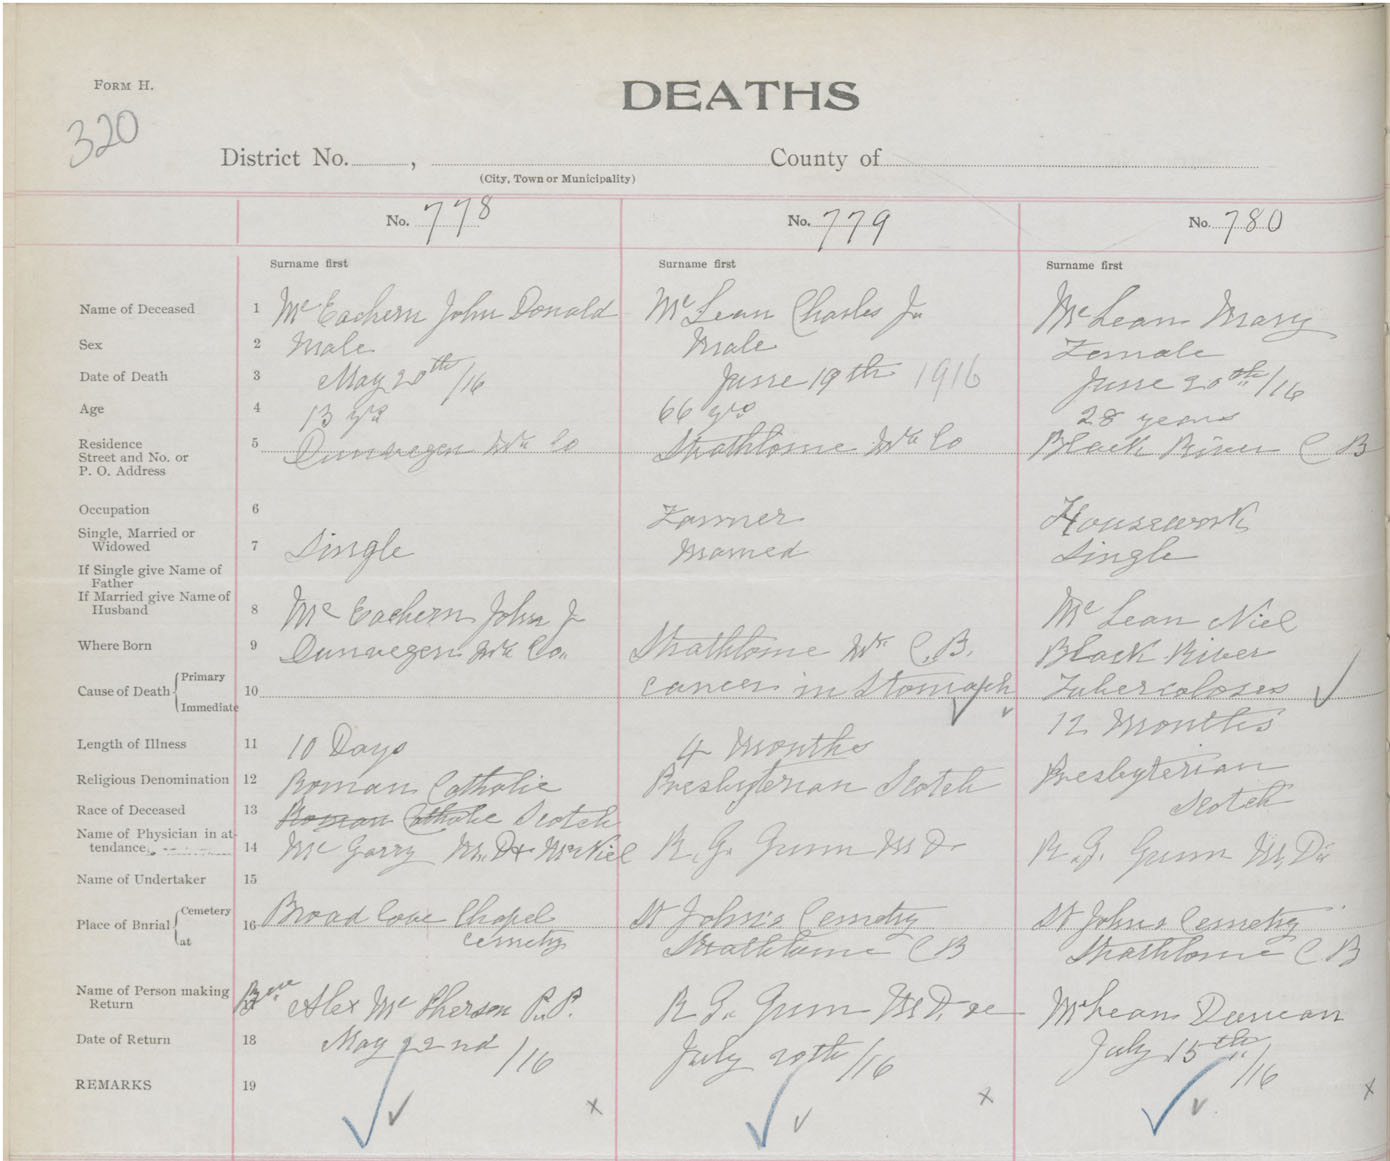 FORM H.
DEATHS
320
District No. , County of
(City, Town or Municipality)
No. 778 No. 779 No. 780
Surname first Surname first Surname first
Name of Deceased 1 McEachern John Donald McLean Charles Jn McLean Mary
Sex 2 Male Male Female
Date of Death 3 May 20th/16 June 19th 1916 June 20th/16
Age 4 13 yrs 66 yrs 28 years
Residence
Street and No. or
P. O. Address 5 Dunvegen Co Strathlorne Co Black River C B
Occupation 6 Farmer Housework
Single, Married or
Widowed 7 Single Married Single
If Single give Name of
Father
If Married give Name of
Husband 8 McEachern John J McLean Niel
Where Born 9 Dunvegen Co. Strathlorne C.B. Black River
Cause of Death Primary
Immediate 10 cancer in Stomach Tubercoloses
Length of Illness 11 10 Days 4 Months 12 Months
Religious Denomination 12 Roman Catholic Presbyterian Scotch Presbyterian
Race of Deceased 13 Roman Catholic Scotch Scotch
Name of Physician in at-
tendance 14 McGarry M.D + McNiel R. G. Gunn M D R. G. Gunn M. D.
Name of Undertaker 15
Place of Burial Cemetery
at 16 Broad Cove Chapel St John's Cemetry St Johns Cemetry
cemetry Strathlorne C B Strathlorne C B
Name of Person making
Return 17 Alex McPherson P.P. R G. Gunn M D. McLean Duncan
Date of Return 18 May 22nd/16 July 20th/16 July 15th/16
REMARKS 19